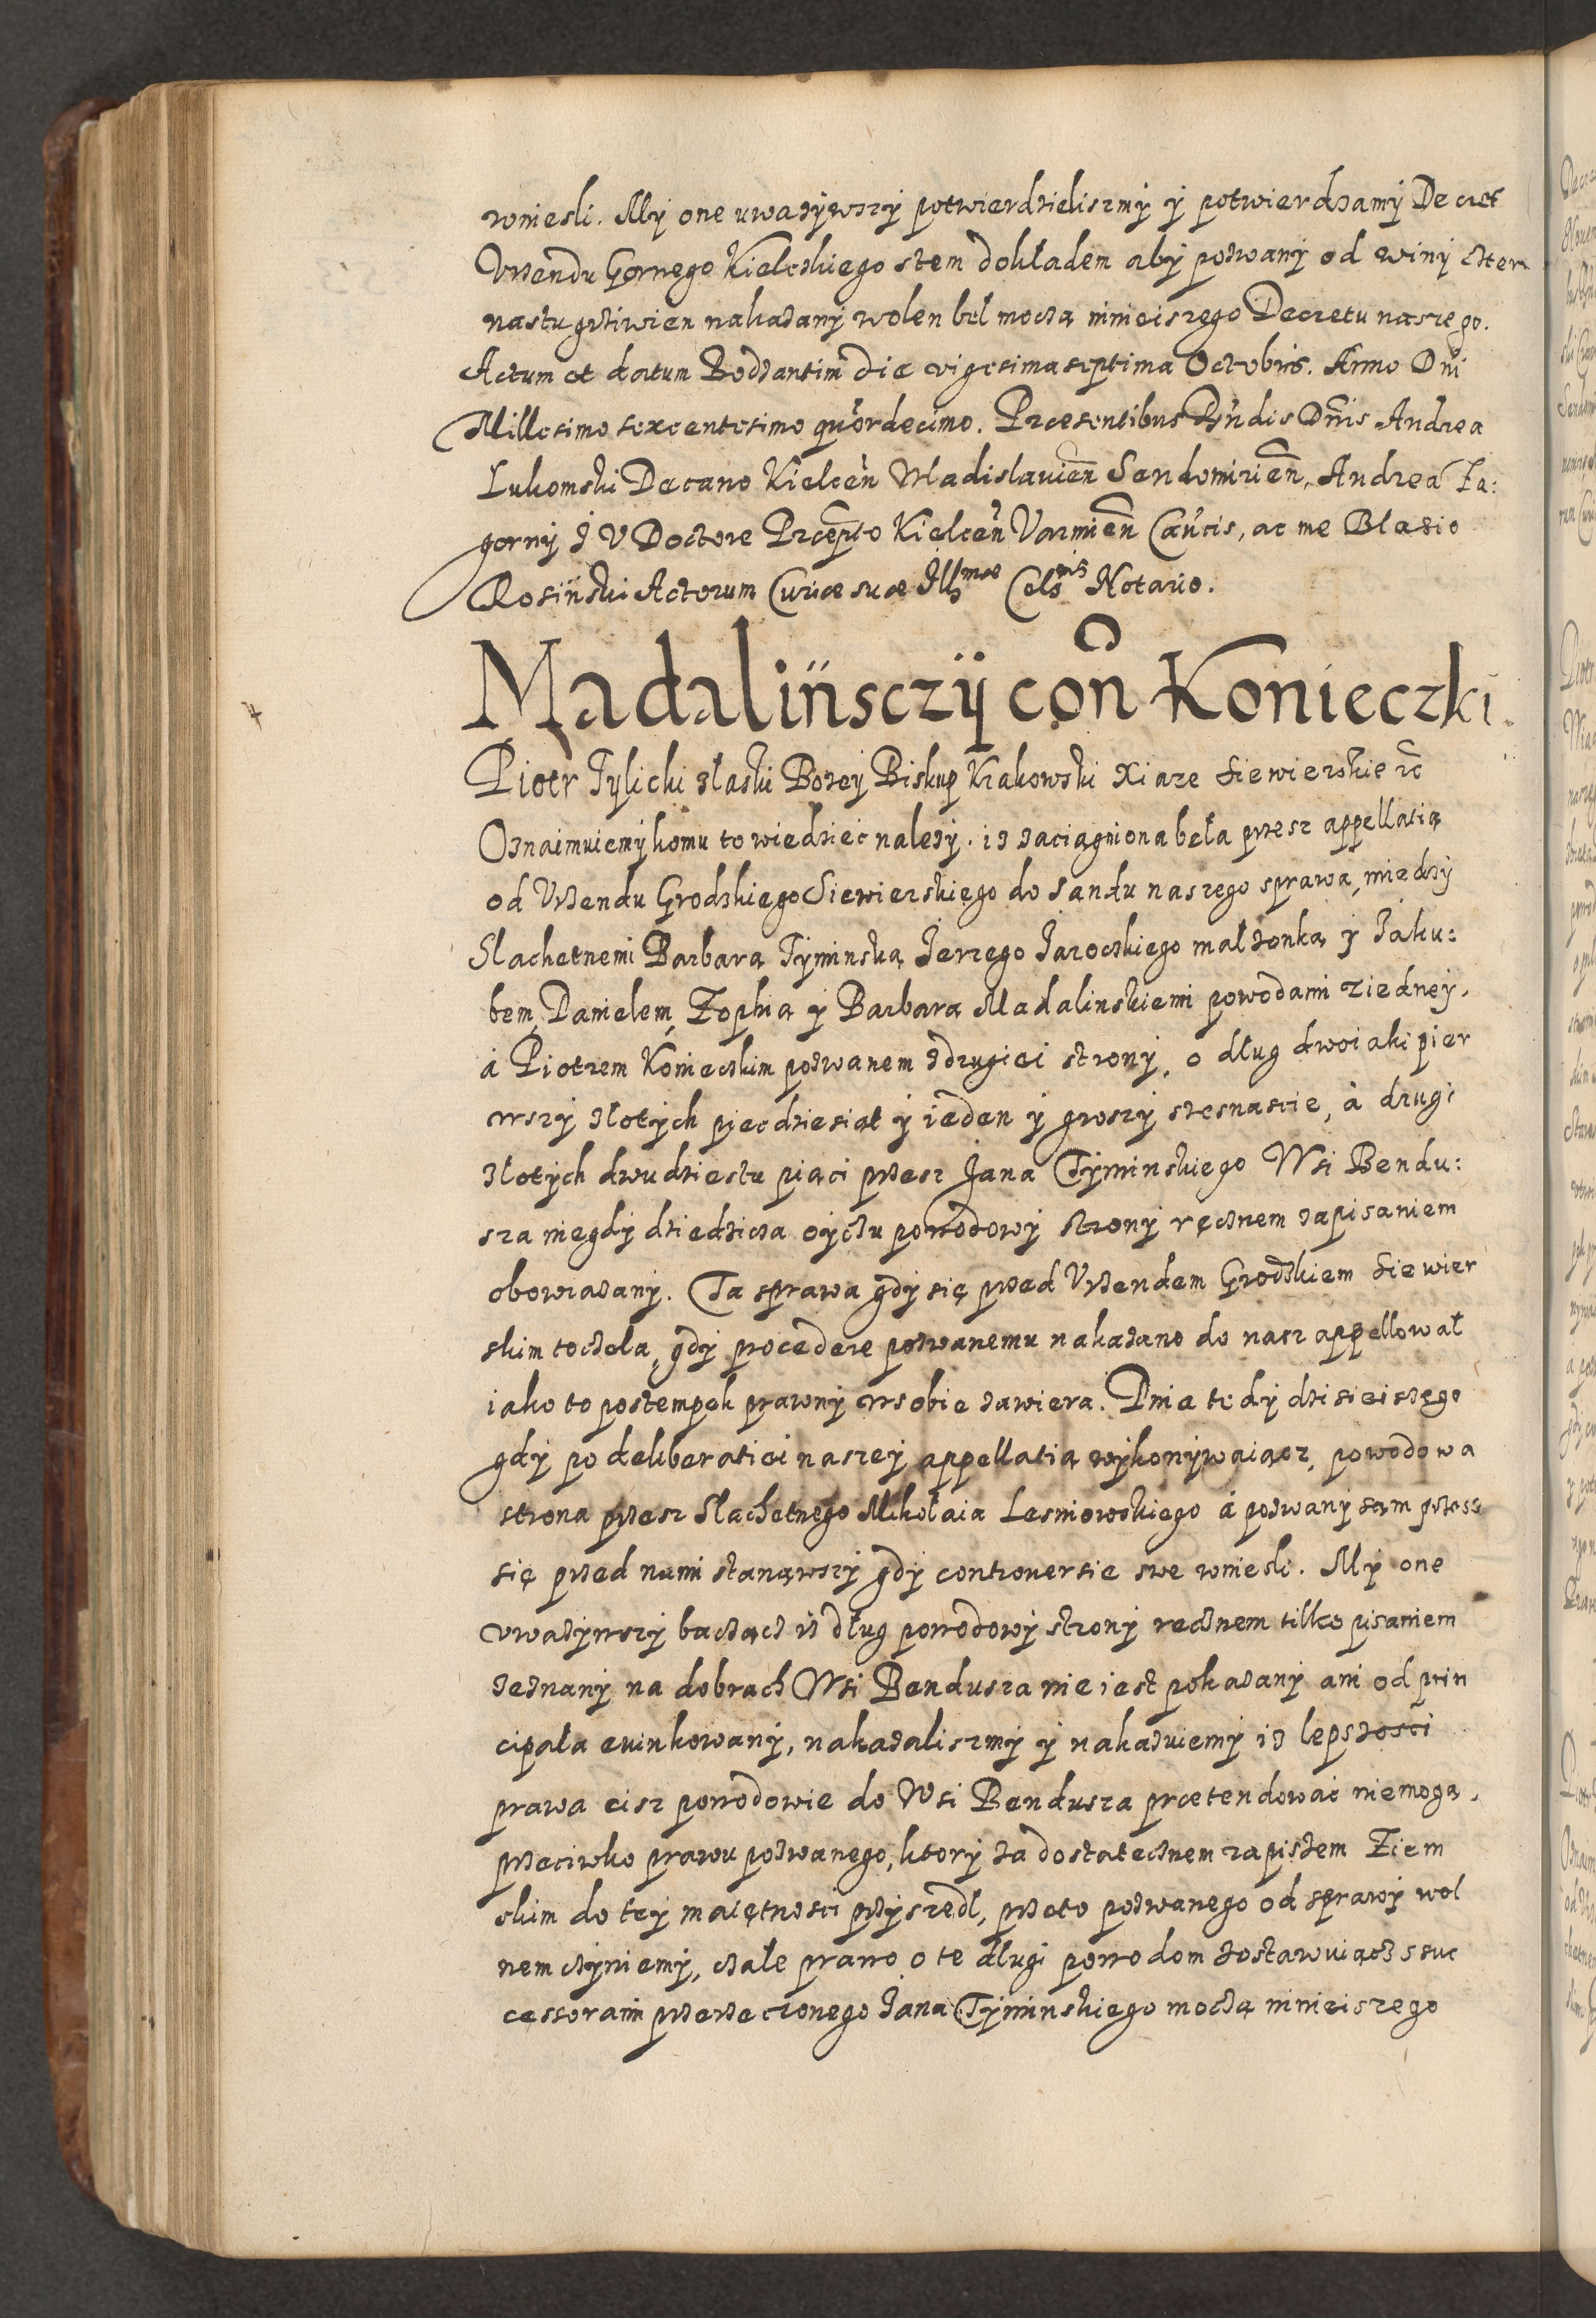 wniesli. My one uwazywszy potwierdzieliszmy y potwierdzamy Decret
Vrzendu Gornego Kielczkiego ztem dokładem aby pozwany od winy czter
nastu grziwien nakazany wolen beł moczą ninieiszego Decretu naszego.
Actum et datum Bodzantim die vigesima septima Octobris. Anno Dni
Millesimo sexcentesimo quordecimo. Præsentibus Rndis Dnis Andrea
Lukomski Decano Kielcen Wladislauien Sendomirien, Andrea Za:
gorny J V Doctore Præpto Kielcen Varmien Cancis, ac me Blasio
Rosiński Actorum Curiæ suæ Illmæ Celsnis Notario.
Madalińsczÿ con Konieczki.
Piotr Tylicki złaski Bozey Biskup Krakowski Xiaze Siewierskie rc
Oznaimuiemy komu to wiedzieć nalezy. iz zaciągniona beła przesz appellatią
od Vrzendu Grodzkiego Siewierskiego do Sandu naszego sprawa, miedzy
Slachetnemi Barbarą Tyminską Jerzego Jaroczkiego małzonką y Jaku:
bem, Danielem, Zophią y Barbarą Madalinskiemi powodami ziedney.
á Piotrem Konieczkim pozwanem zdrugiei strony, o dług dwoiaki pier
wszy złotych piecdziesiąt y ieden y groszy szesnascie, á drugi
złotych dwudziestu piąci przesz Jana Tyminskiego Wsi Bendu:
sza niegdy dziedzicza oyczu powodowy strony ręcznem zapisaniem
obowiazany. Ta sprawa gdy się przed Vrzendem Grodzkiem Siewier
skim toczela, gdy procedere pozwanemu nakazano do nasz appellował
iako to postempek prawny wsobie zawiera. Dnia tedy dzisieiszego
gdy po deliberatiei naszey appellatią wykonywaiącz, powodowa
strona przesz Slachetnego Mikołaia Lesniowskiego á pozwany sam przess
się przed nami stanąwszy gdy controuersie swe wniesli. My one
vwazywszy baczącz iż dług powodowy strony recznem tilko pisaniem
zeznany na dobrach Wsi Bendusza nie iest pokazany ani od prin
cipała euinkowany, nakazaliszmy y nakazuiemy iz lepszości
prawa cisz powodowie do Wsi Bendusza prætendować niemogą.
przeciwko prawu pozwanego, ktory za dostatecznem zapiszem Ziem
skim do tey maiętnosci przyszedł, przeto pozwanego od sprawy wol
nem czyniemy, czałe prawo o te długi powodom zostawuiącz ssuc
cessorami przerzeczonego Jana Tyminskiego moczą ninieiszego